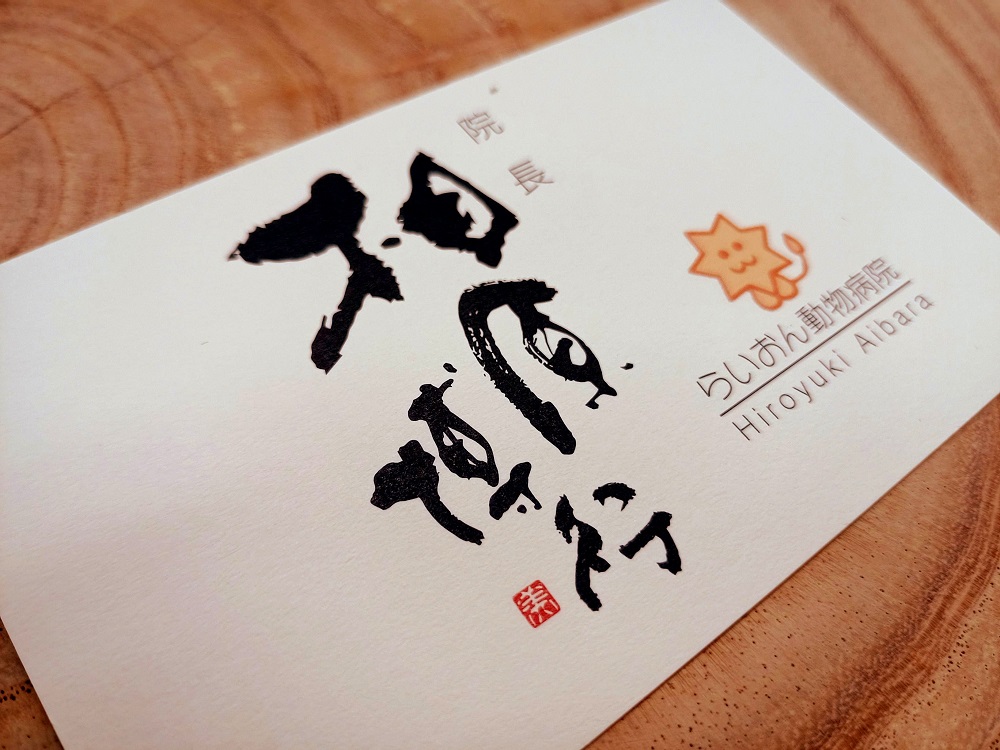 院長
相原博行
美
らいおん動物病院
Hiroyuki Aibara